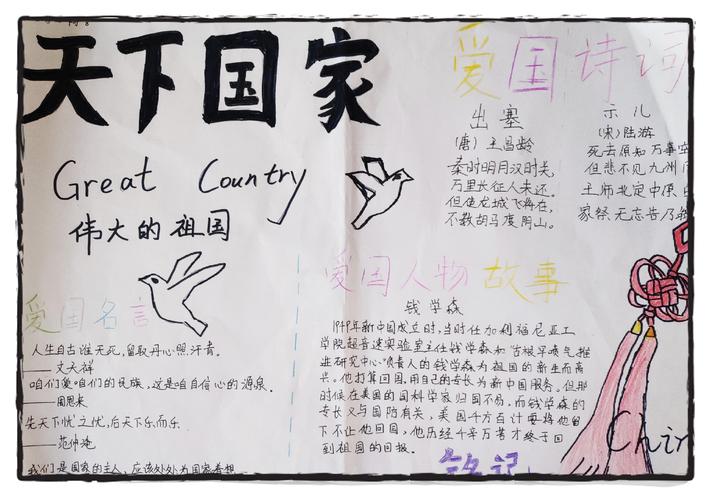 天下国家
Great Country
伟大的祖国
爱国名言
人生自古谁无死,留取丹心照汗青。
——文天祥
咱们爱咱们的民族,这是咱自信心的源泉。
——周恩来
先天下忧之忧,后天下乐而乐
——范仲淹
我们是国家的主人,应该处处为国家着想
爱国诗词
出塞
(唐)王昌龄
秦时明月汉时关,
万里长征人未还。
但使龙城飞将在,
不教胡马度阴山。
示儿
(宋)陆游
死去原知万事空
但悲不见九州同
王师北定中原日
家祭无忘告乃翁
爱国人物故事
钱学森
1949年新中国成立时,当时任加利福尼亚工
学院超音速实验室主任钱学森和“古根罕喷气推
进研究中心”负责人的钱学森为祖国的新生而高
兴。他打算回国,用自己的专长为新中国服务。但那
时候在美国的国科学家归国不易,而钱学森的
专长又与国防有关,美国千方百计要将他留
下不让他回国,他历经千辛万苦才终于回
到祖国的回报。
铭记
Chin